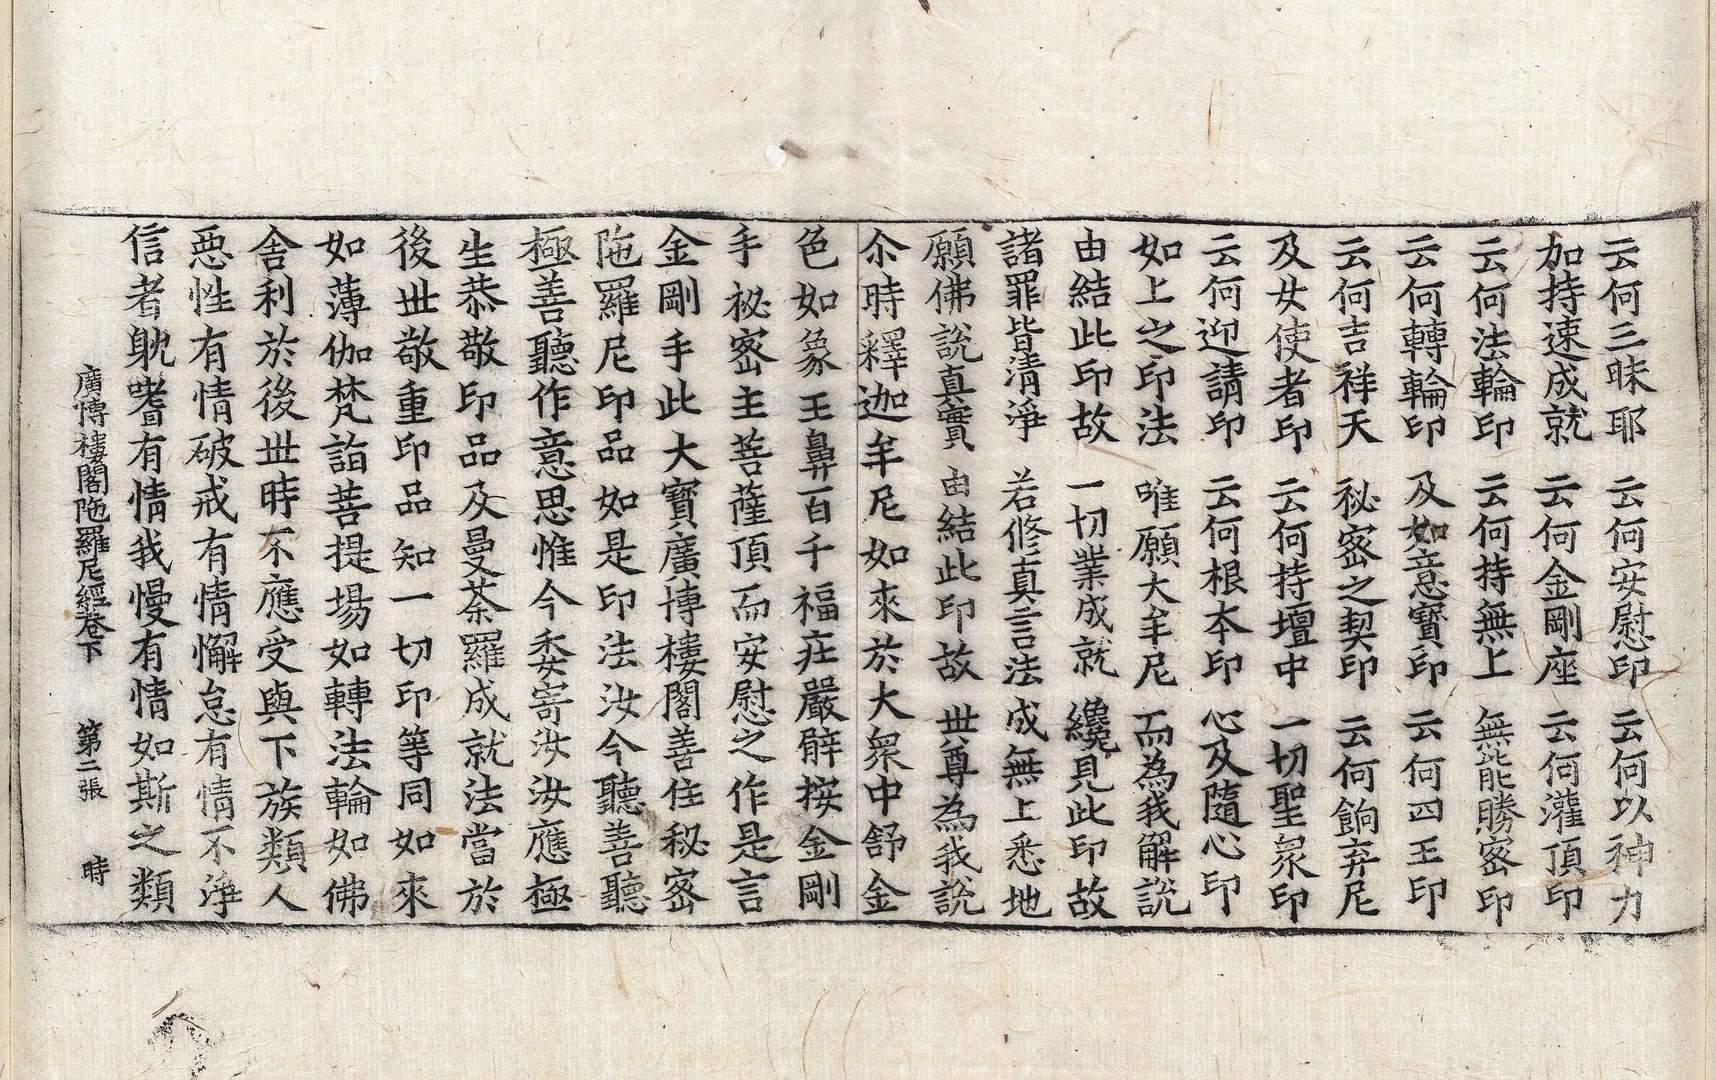 云何三昧耶　云何安慰印　云何以神力
加持速成就　云何金剛座　云何灌頂印
云何法輪印　云何持無上　無能勝密印
云何轉輪印　及如意寶印　云何四王印
云何吉祥天　秘密之契印　云何餉弃尼
及女使者印　云何持壇中　一切聖衆印
云何迎請印　云何根本印　心及隨心印
如上之印法　唯願大牟尼　而為我解説
由結此印故　一切業成就　纔見此印故
諸罪皆清淨　若修真言法　成無上悉地
願佛説真實　由結此印故　世尊為我説
尒時釋迦牟尼如來於大衆中舒金
色如象王鼻百千福庄嚴臂按金剛
手祕密主菩薩頂而安慰之作是言
金剛手此大寶廣博樓閣善住秘密
陁羅尼印品如是印法汝今聽善聽
極善聽作意思惟今委寄汝汝應極
生恭敬印品及曼荼羅成就法當於
後世敬重印品知一切印等同如來
如薄伽梵詣菩提場如轉法輪如佛
舍利於後世時不應受與下族類人
惡性有情破戒有情懈怠有情不淨
信者躭嗜有情我慢有情如斯之類
廣博樓閣陁羅尼經卷下　第二張　時